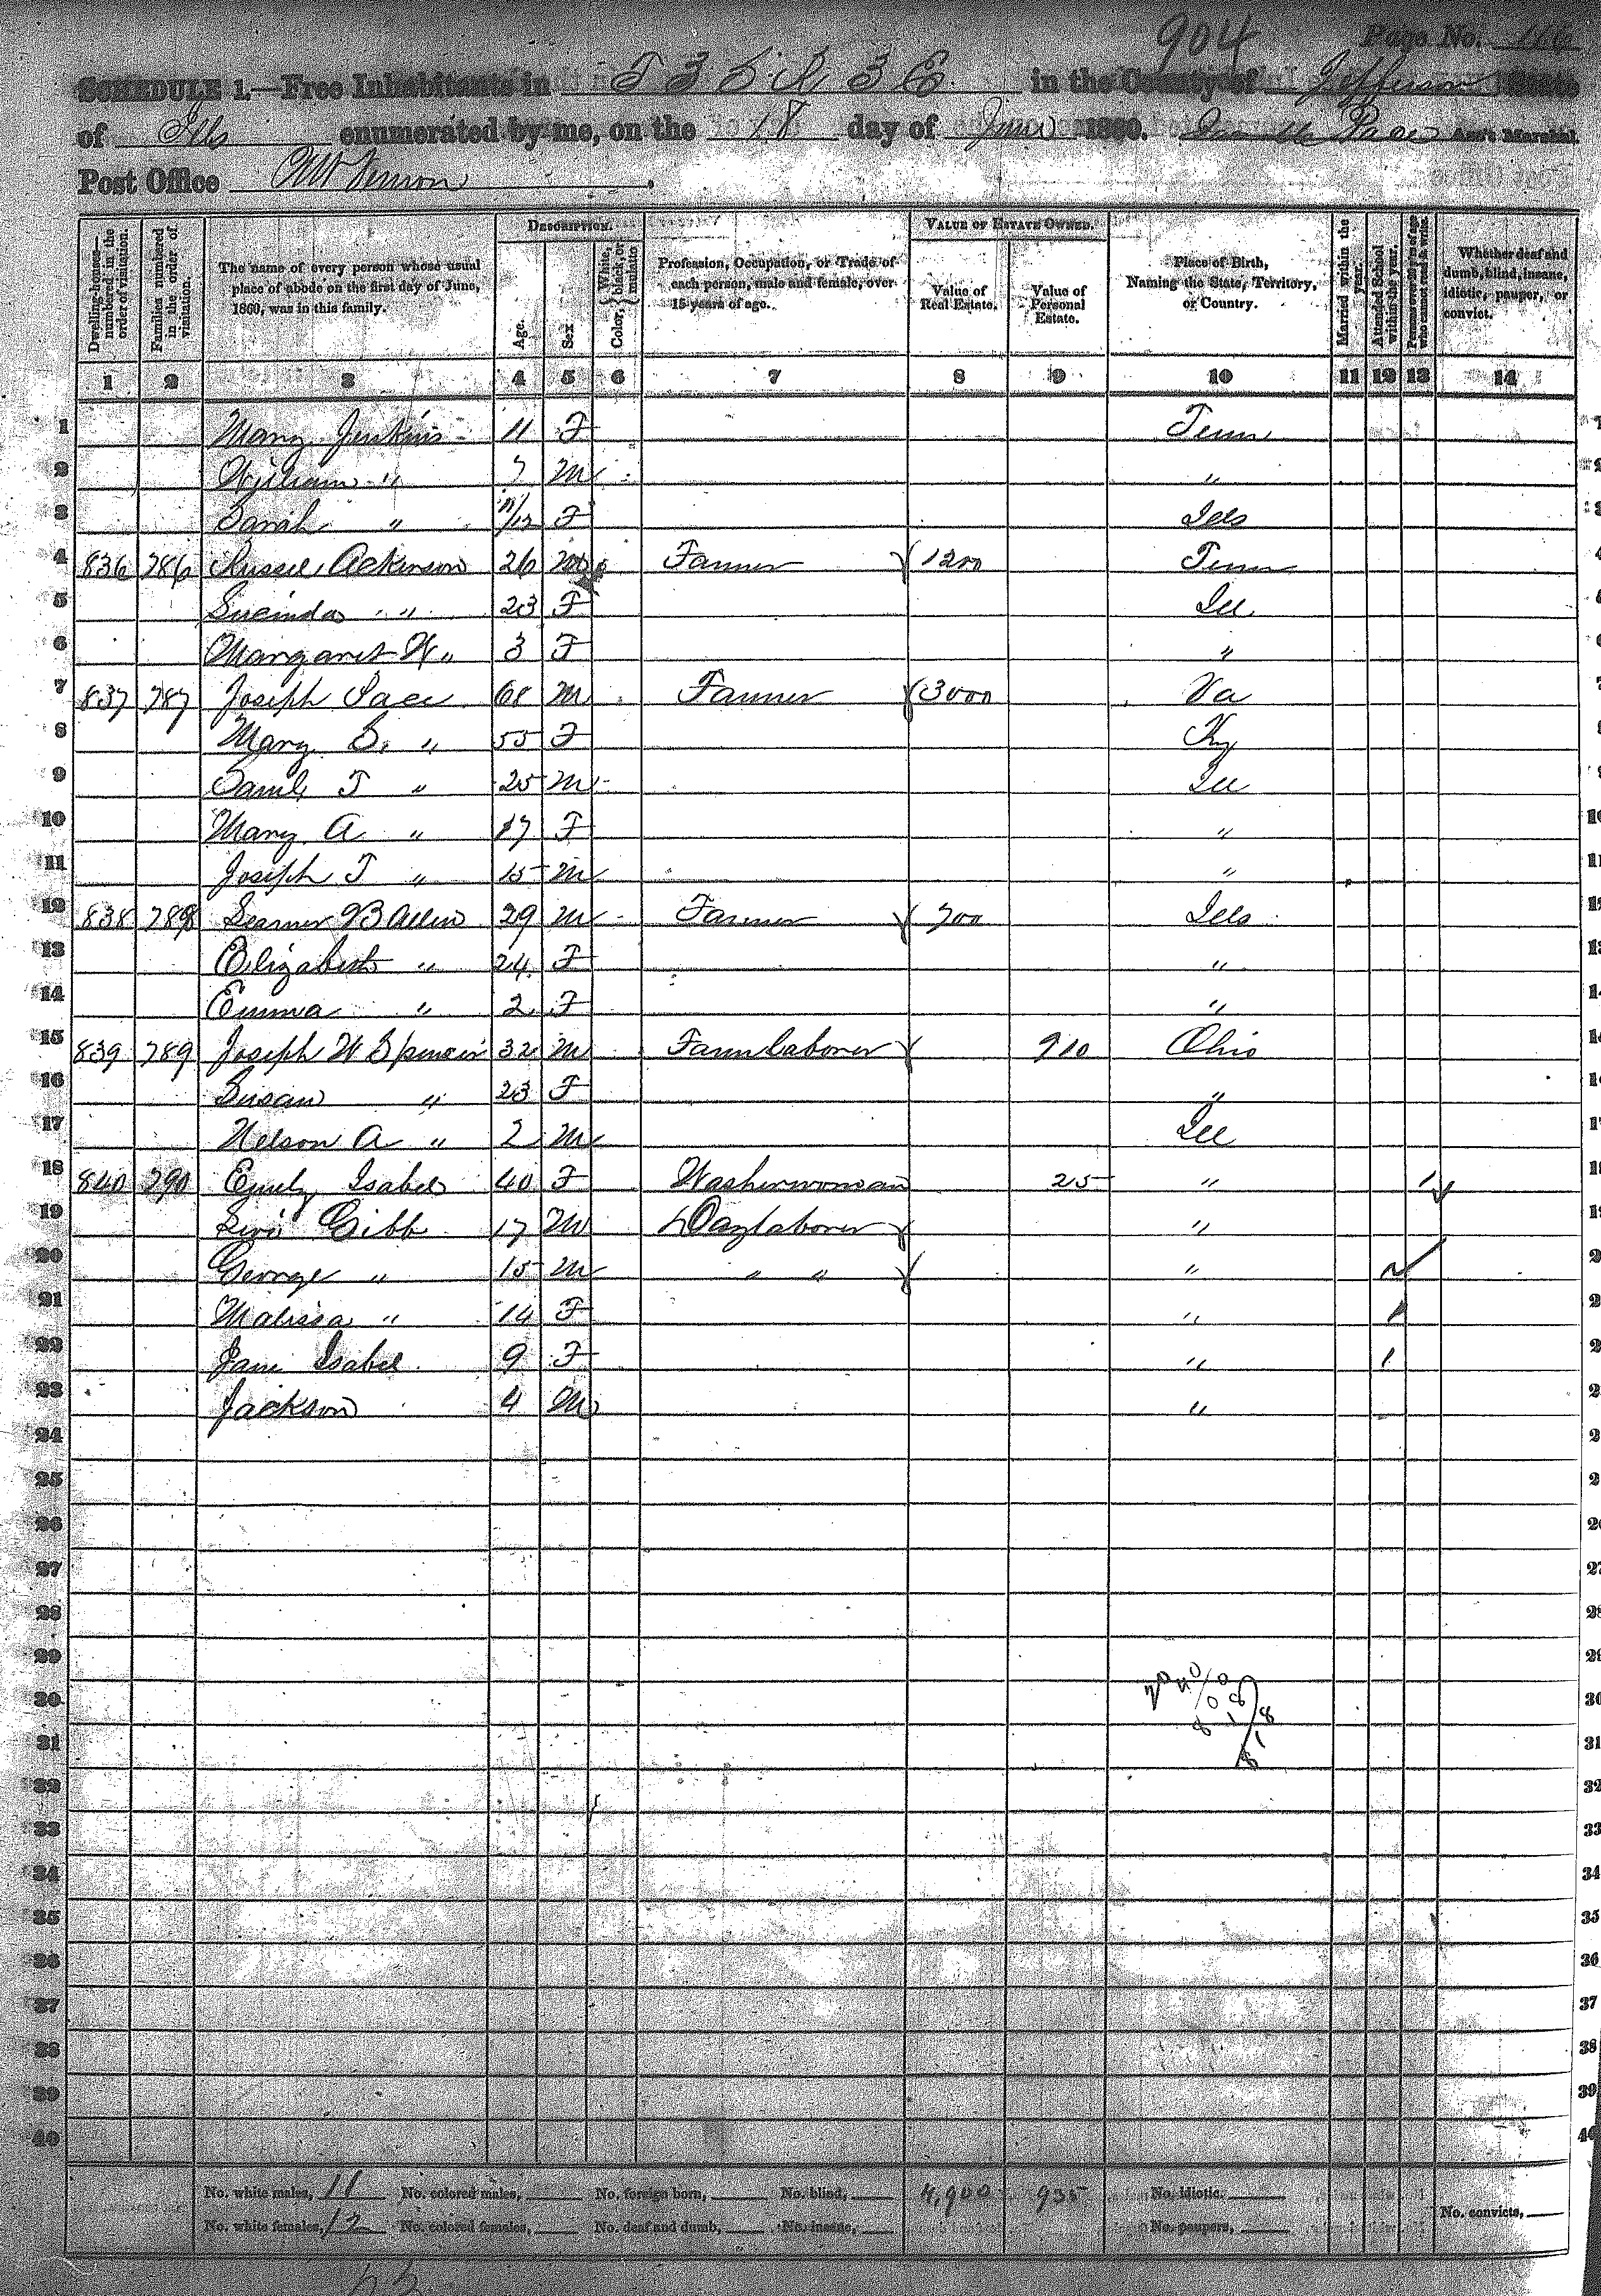 904 Page No. 166
SCHEDULE 1.—Free Inhabitants in T 3 S R 3 E in the County of Jefferson State
of Ills enumerated by me, on the 18 day of June 1860. Pace Ass't Marshal.
Post Office Mt Vernon.
DESCRIPTION. VALUE OF ESTATE OWNED.
Dwelling-houses—numbered in the order of visitation. Families numbered in the order of visitation. The name of every person whose usual place of abode on the first day of June, 1860, was in this family. Age. Sex Color, { White, black, or mulatto Profession, Occupation, or Trade of each person, male and female, over 15 years of age. Value of Real Estate. Value of Personal Estate. Place of Birth, Naming the State, Territory, or Country. Married within the year. Attended School within the year. Persons over 20 y'rs of age who cannot read & write. Whether deaf and dumb, blind, insane, idiotic, pauper, or convict.
1 2 3 4 5 6 7 8 9 10 11 12 13 14
1 Mary Jenkins 11 F Tenn
2 William " 7 M "
3 Sarah " 11/12 F Ills
4 836 786 Russel Ackinson 26 M Farmer 1200 Tenn 4
5 Lucinda " 23 F Ill
6 Margaret " 3 F "
7 837 787 Joseph Pace 68 M Farmer 3000 Va 7
8 Mary S. " 55 F Ky
9 Saml T " 25 M Ill
10 Mary A " 17 F " 10
11 Joseph T " 15 M " 11
12 838 788 B Allen 29 M Farmer 700 Ills 12
13 Elizabeth " 24 F " 13
14 Emma " 2 F " 14
15 839 789 Joseph W Spencer 32 M Farm laborer 910 Ohio
16 Susan " 23 F "
17 Nelson A " 2 M Ill
18 840 790 Emily Isabel 40 F Washerwoman 25 " 1
19 Levi Gibb 17 M Day laborer "
20 George " 15 M " " "
21 Malissa " 14 F " 1
22 Jane Isabel 9 F " 1
23 Jackson 4 M "
24
25
26
27
28
29
30 30
31 31
32 32
33 33
34 34
35 35
36 36
37 37
38 38
39 39
40
No. white males, 11 No. colored males, No. foreign born, No. blind, 4,900 935 No. idiotic.
No. white females, 12 No. colored females, No. deaf and dumb, No. insane, No. paupers, No. convicts,